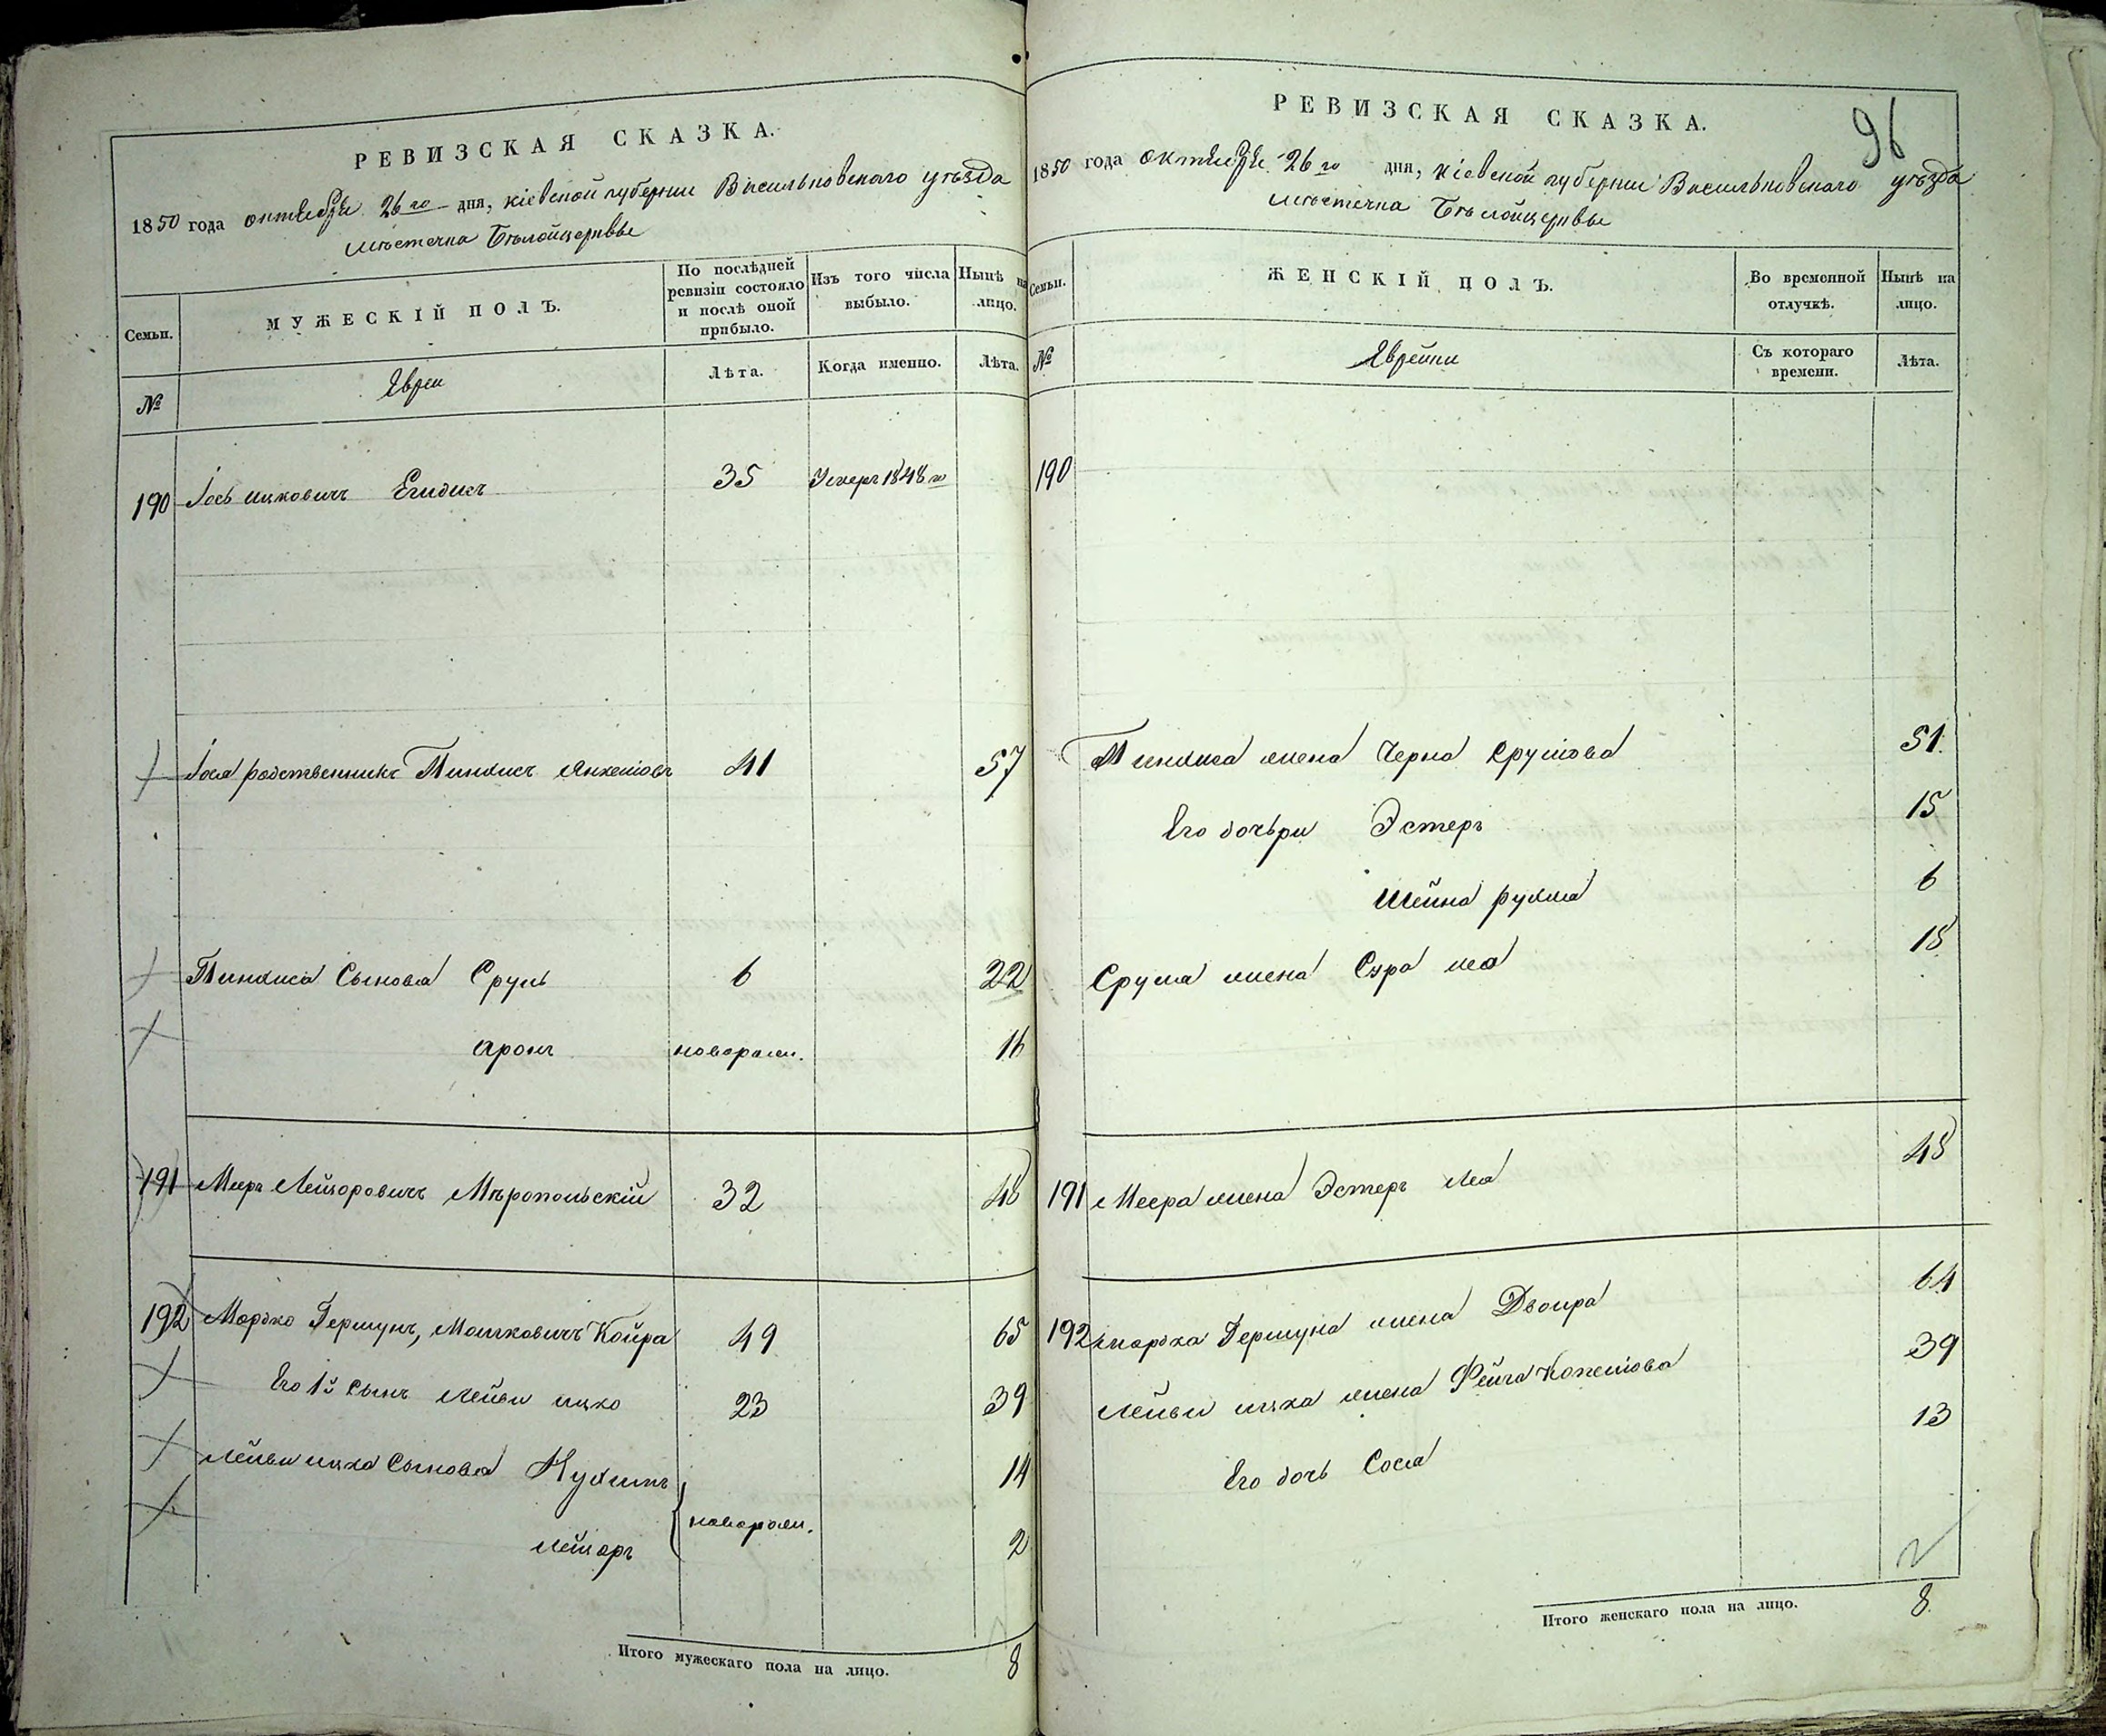 РЕВИЗСКАЯ СКАЗКА.
1850 года октября 26го дня, кіевской губерніи Васильковскаго уѣзда
мѣстечка Бѣлойцерквы
Семьи.
МУЖЕСКІЙ ПОЛЪ.
По послѣдней ревизіи состояло и послѣ оной прибыло.
Изъ того числа выбыло.
Нынѣ на лицо.
№
Евреи
Лѣта.
Когда именно.
Лѣта.
190 Іось ицковичъ 35 Умеръ 1848го
Іося родственникъ Пинхасъ Янкелювъ 41 57
Пинхаса Сыновья Сруль 6 22
аронъ новорожд. 16
191 Мееръ Лейзоровичъ Мѣропольскій 32 48
192 Мордко Гершунъ, Мошковичъ Койра 49 65
Его 1й сынъ Лейви ицко 23 39
Лейви ицка Сыновья Нухимъ 14
Лейзоръ новорожд. 2
Итого мужескаго пола на лицо. 8
96
РЕВИЗСКАЯ СКАЗКА.
1850 года октября 26го дня, кіевской губерніи Васильковскаго уѣзда
мѣстечка Бѣлойцерквы
Семьи.
ЖЕНСКІЙ ПОЛЪ.
Во временной отлучкѣ.
Нынѣ на лицо.
№
Еврейки
Съ котораго времени.
Лѣта.
190
Пинхаса жена Черна Срулюва 51
Его дочьри Эстеръ 15
Шейна рухля 6
Сруля жена Сура леа 18
191 Меера жена Эстеръ Леа 48
192 мордка Гершуна жена Двойра 64
Лейви ицка жена Фейга Копелюва 39
Его дочь Сося 13
Итого женскаго пола на лицо. 8